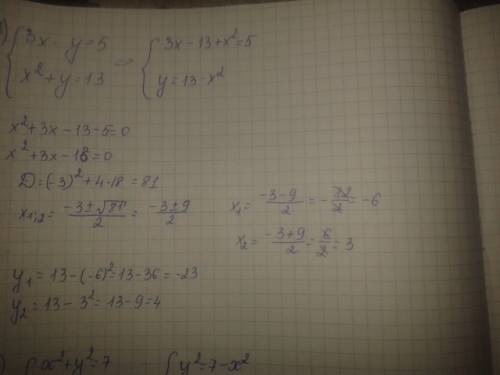 1) { 3x - y = 5 ⇒ { 3x - 13 + x² = 5
x² + y = 13 y = 13 - x²
x² + 3x - 13 - 5 = 0
x² + 3x - 18 = 0
D = (-3)² + 4·18 = 81
x₁,₂ = (-3 ± √81)/2 = (-3 ± 9)/2
x₁ = (-3 - 9)/2 = -12/2 = -6
x₂ = (-3 + 9)/2 = 6/2 = 3
y₁ = 13 - (-6)² = 13 - 36 = -23
y₂ = 13 - 3² = 13 - 9 = 4
) { x² + y² = 7 { y² = 7 - x²